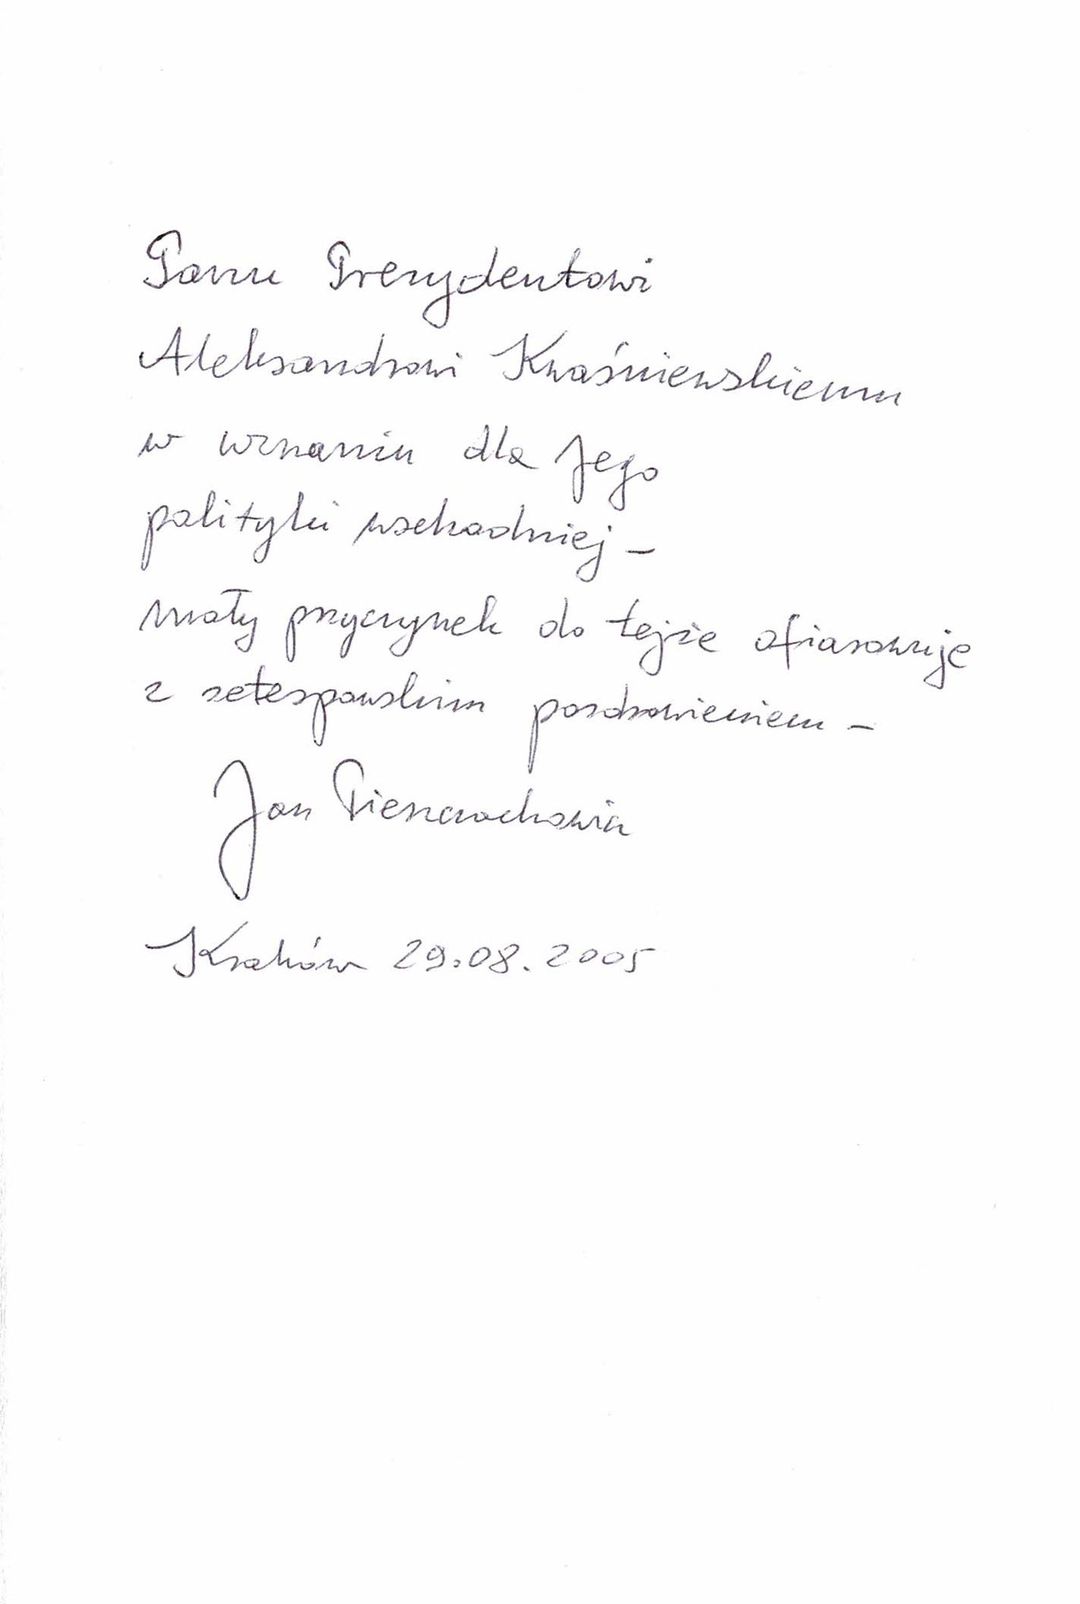 Panu Prezydentowi
Aleksandrowi Kwaśniewskiemu
w uznaniu dla Jego
polityki wschodniej –
mały przyczynek do tejże ofiarowuje
z zetespowskim pozdrowieniem –
Jan
Kraków 29.08.2005